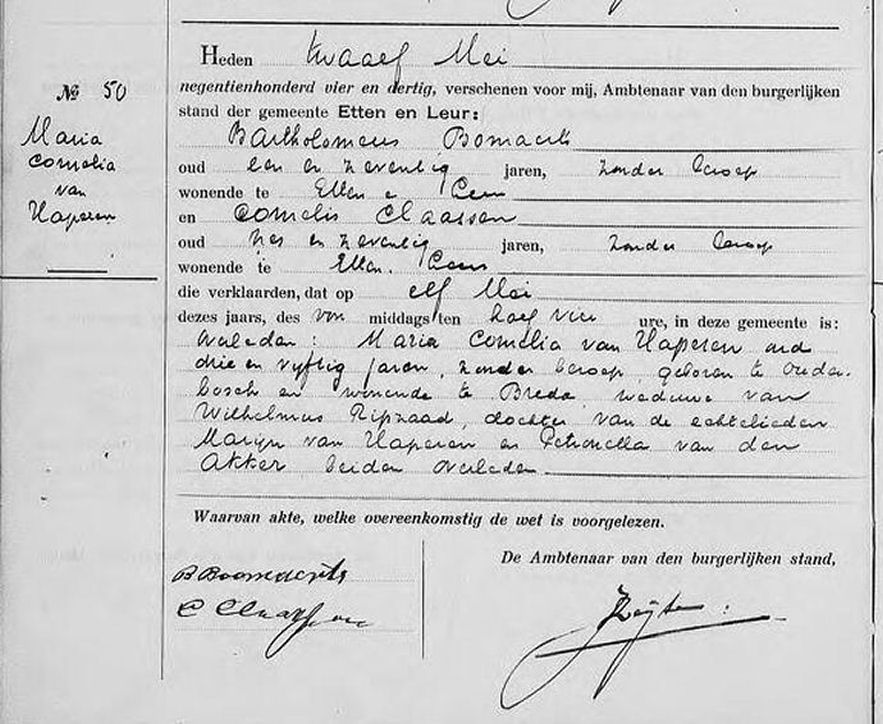 Heden twaalf Mei
negentienhonderd vier en dertig, verschenen voor mij, Ambtenaar van den burgerlijken
stand der gemeente Etten en Leur:
Bartholomeus Bomaerts
oud een en zeventig jaren, zonder beroep
wonende te Etten en Leur
en Cornelis Claassen
oud zes en zeventig jaren, zonder beroep
wonende te Etten. Leur
die verklaarden, dat op elf Mei
dezes jaars, des voor middags ten half vier ure, in deze gemeente is:
overleden: Maria Cornelia van Haperen oud
drie en vyftig jaren, zonder beroep, geboren te Ouden-
bosch en wonende te Breda, weduwe van
Wilhelmus Ripzaad, dochter van de echtelieden
Maryn van Haperen en Petronella van den
Akker beiden overleden.
No 50
Maria
Cornelia
van
Haperen
Waarvan akte, welke overeenkomstig de wet is voorgelezen.
De Ambtenaar van den burgerlijken stand,
B Boomaerts
C Claassen